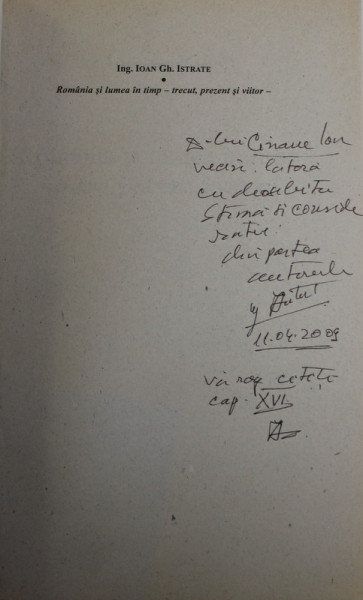 Ing. IOAN Gh. ISTRATE
•
România și lumea în timp – trecut, prezent și viitor –
D-lui Ion
cu deosebita
stimă si conside
ratie
din partea
autorului
11.04.2009
vă rog citiți
cap. XVI.